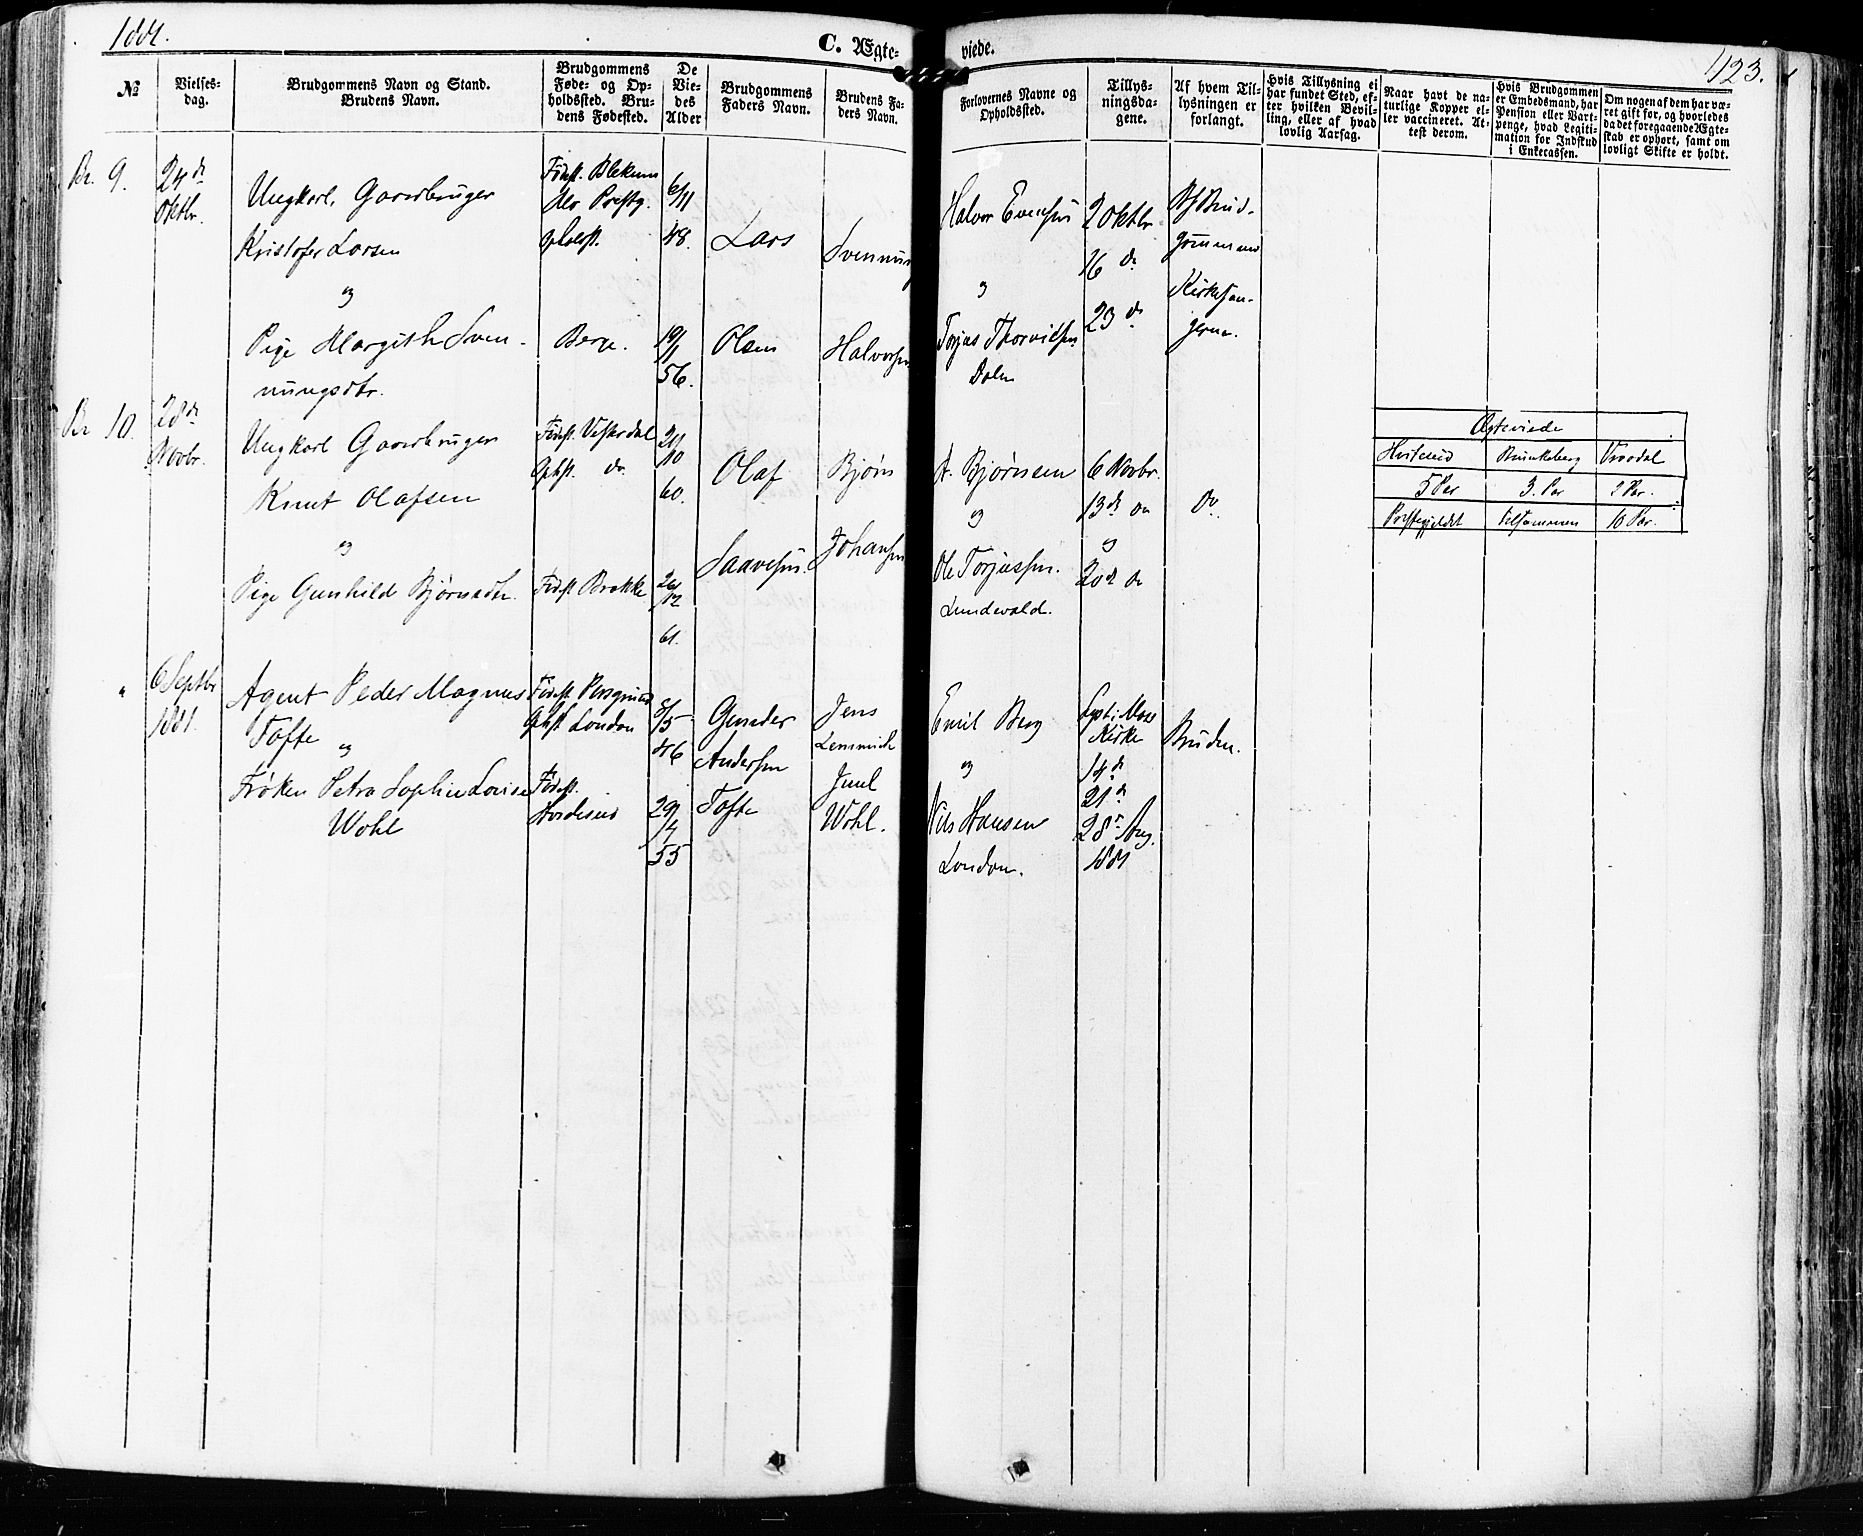 1881.
C. Ægte-
viede.
123.
No
Vielses-
dag.
Brudgommens Navn og Stand.
Brudens Navn.
Brudgommens
Føde- og Op-
holdssted. Bru-
dens Fødested.
De
Vie-
des
Alder
Brudgommens
Faders Navn.
Brudens Fa-
ders Navn.
Forlovernes Navne og
Opholdssted.
Tillys-
ningsda-
gene.
Af hvem Til-
lysningen er
forlangt.
Hvis Tillysning ei
har fundet Sted, ef-
ter hvilken Bevil-
ling, eller af hvad
lovlig Aarsag.
Naar havt de na-
turlige Kopper el-
ler vaccineret. At-
test derom.
Hvis Brudgommen
er Embedsmand, har
Pension eller Vart-
penge, hvad Legiti-
mation for Indskud
i Enkecassen.
Om nogen af dem har væ-
ret gift før, og hvorledes
da det foregaaende Ægte-
skab er ophørt, samt om
lovligt Skifte er holdt.
Br. 9.
24de
Oktbr.
Ungkarl, Gaardbruger
Kristofer Larsen
og
Pige Margith Sven-
nungsdtr.
Berge.
6/11
48.
19/1
56.
Lars
Olsen
Svennung
Halvorsen
Halvor Evensen
og
Torjus Thorvildsen
Dalen
2 Oktbr
16 de
23 de
Af Brud-
gommen
Kirkesan-
geren.
Br. 10.
28de
Novbr.
Ungkarl Gaardbruger
Knut Olafsen
og
Pige Gunhild Bjørnsdtr.
Fødest. Vesterdal
Ophst. do
Fødest Brekke
20/10
60.
26/12
61.
Olaf
Saavesen.
Bjørn
Johansen
A. Bjørnsen
og
Ole Torjussen.
Lundevald.
6 Novbr.
13de do
og
20de do
Do
Ægteviede
Hvitseid Brunkeberg Vraadal
5 Par 3. Par 2 Par.
Præstegjeldet tilsammen 10 Par.
"
6 Septbr
1881.
Agent Peder Magnus
Tofte
og
Frøken Petra Sophie Louise
Wohl
Fødest. Porsgrund
Ophst London
Fødest.
Hvideseid
8/5
46
29/4
55
Gunder
Andersen
Tofte
Jens
Lemmich
Juul
Wohl.
Emil Berg
og
Nils Hansen
London.
Lyst i Moss
Kirke
14de
21de
28de Aug.
1881
Bruden.